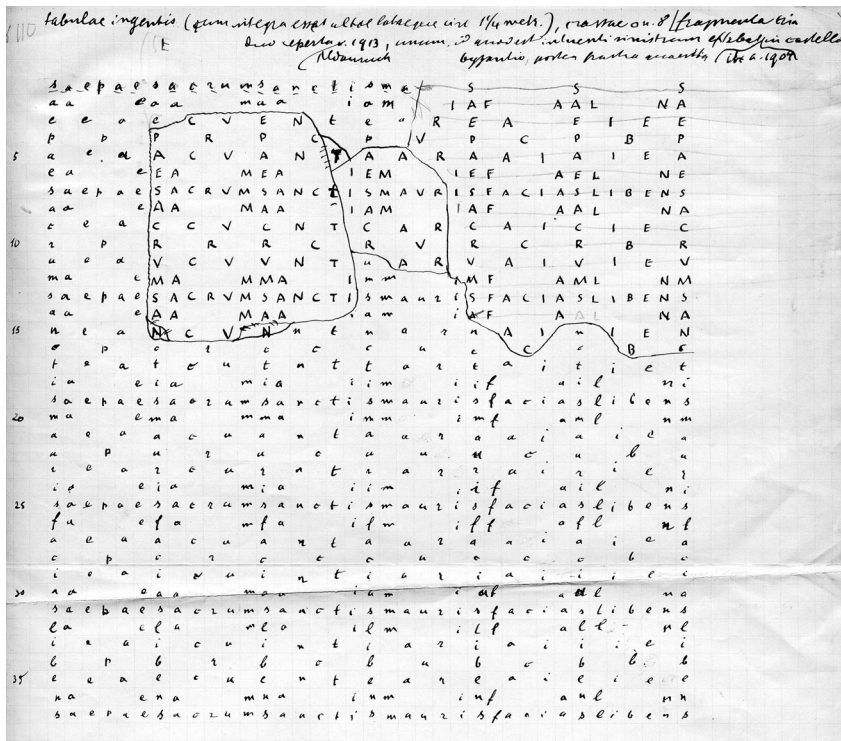 tabulae ingentis (cum integra esset altae lataeque circ. 1¼ metr.), crassae 0m. 8 fragmenta tria
E duo reperta a. 1913, unum, sinistrum castello
byzantino, postea a. 1907
s a e p a e s a c r u m s a n c t i s m a S S S
a a e a a m a a i a m I A F A A L N A
e e a e C V E N t e a R E A E I E E
p p P R P C p V P C P B P
5 a e a A C V A N T A A R A A I A I E A
e a e E A M E A I E M I E F A E L N E
s a e p a e S A C R V M S A N C t I S M A V R I S F A C I A S L I B E N S
a a e A A M A A I A M I A F A A L N A
c e a C C V C N T C A R C A I C I E C
10 r p R R R C R V R C R B R
u e a V C V V N T u A R V A I V I E V
m a e M A M M A I m m I M F A M L N M
s a e p a e S A C R V M S A N C T I s m a u r i S F A C I A S L I B E N S
a a e A A M A A i a m i A F A A L N A
15 n e a N C V N n t n a r n A I n I E N
c p c r c c c u c C c B c
t e a t c u t n t t a r t a i t i e t
i a e i a m i a i i m i i f a i l n i
s a e p a e s a c r u m s a n c t i s m a u r i s f a c i a s l i b e n s
20 m a e m a m m a i m m i m f a m l n m
a e a a c u a n t a a r a a i a i e a
u p u r u c u u u c u b u
r e a r c u r n t r a r r a i r i e r
i a e i a m i a i i m i i f a i l n i
25 s a e p a e s a c r u m s a n c t i s m a u r i s f a c i a s l i b e n s
f a e f a m f a i f m i f f a f l n f
a e a a c u a n t a a r a a i a i e a
c p c r c c c u c c c b c
i e a i c u i n t i a r i a i i i e i
30 a a e a a m a a i a m i a f a a l n a
s a e p a e s a c r u m s a n c t i s m a u r i s f a c i a s l i b e n s
l a e l a m l a i l m i l f a l l n l
i e a i c u i n t i a r i a i i i e i
b p b r b c b u b c b b b
35 e e a e c u e n t e a r e a i e i e e
n a e n a m n a i n m i n f a n l n n
s a e p a e s a c r u m s a n c t i s m a u r i s f a c i a s l i b e n s